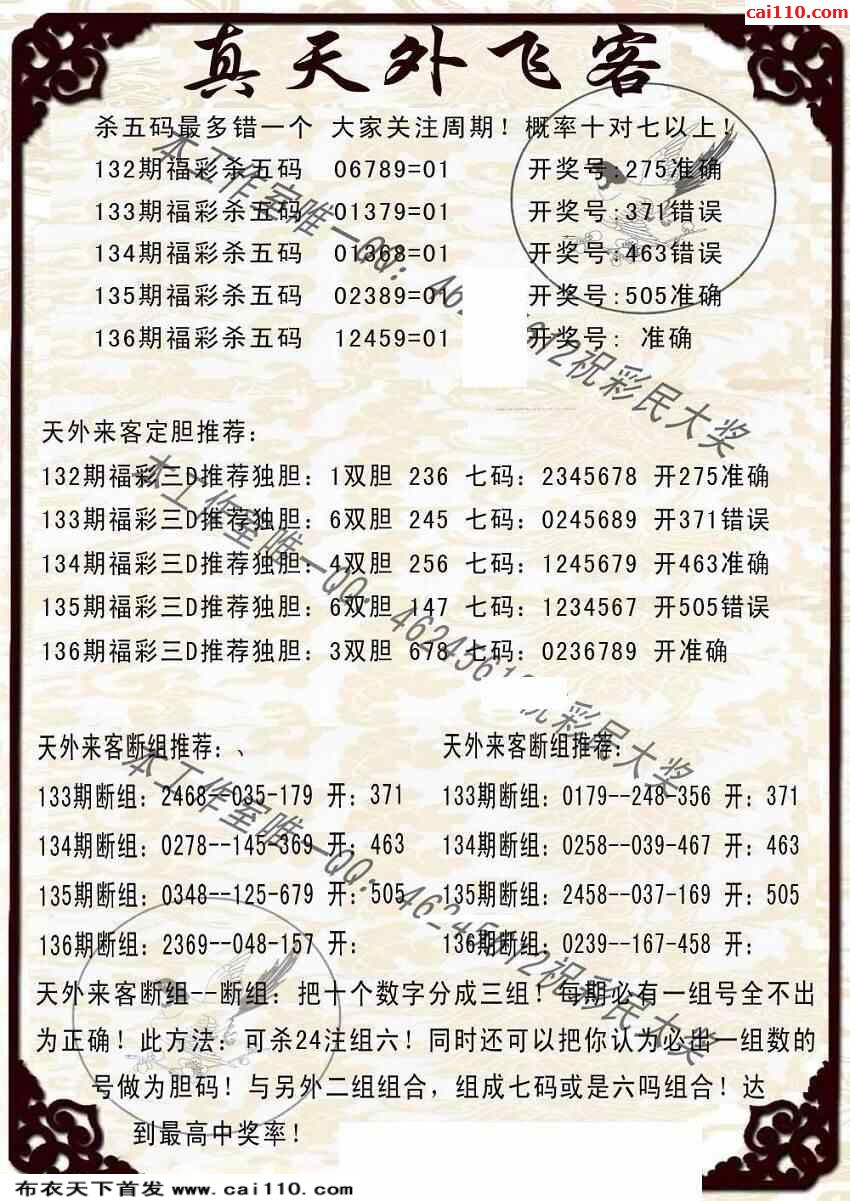 cai110.com
真天外飞客
杀五码最多错一个 大家关注周期！概率十对七以上！
132期福彩杀五码 06789=01 开奖号:275准确
133期福彩杀五码 01379=01 开奖号:371错误
134期福彩杀五码 01368=01 开奖号:463错误
135期福彩杀五码 02389=01 开奖号:505准确
136期福彩杀五码 12459=01 开奖号: 准确
天外来客定胆推荐：
132期福彩三D推荐独胆：1双胆 236 七码：2345678 开275准确
133期福彩三D推荐独胆：6双胆 245 七码：0245689 开371错误
134期福彩三D推荐独胆：4双胆 256 七码：1245679 开463准确
135期福彩三D推荐独胆：6双胆 147 七码：1234567 开505错误
136期福彩三D推荐独胆：3双胆 678 七码：0236789 开准确
天外来客断组推荐：、
133期断组：2468--035-179 开：371
134期断组：0278--145-369 开：463
135期断组：0348--125-679 开：505
136期断组：2369--048-157 开：
天外来客断组推荐：
133期断组：0179--248-356 开：371
134期断组：0258--039-467 开：463
135期断组：2458--037-169 开：505
136期断组：0239--167-458 开：
天外来客断组--断组：把十个数字分成三组！每期必有一组号全不出
为正确！此方法：可杀24注组六！同时还可以把你认为必出一组数的
号做为胆码！与另外二组组合，组成七码或是六吗组合！达
到最高中奖率！
本工作室唯一QQ：
祝彩民大奖
本工作室唯一QQ：
祝彩民大奖
本工作室唯一QQ：
祝彩民大奖
布衣天下首发 www.cai110.com